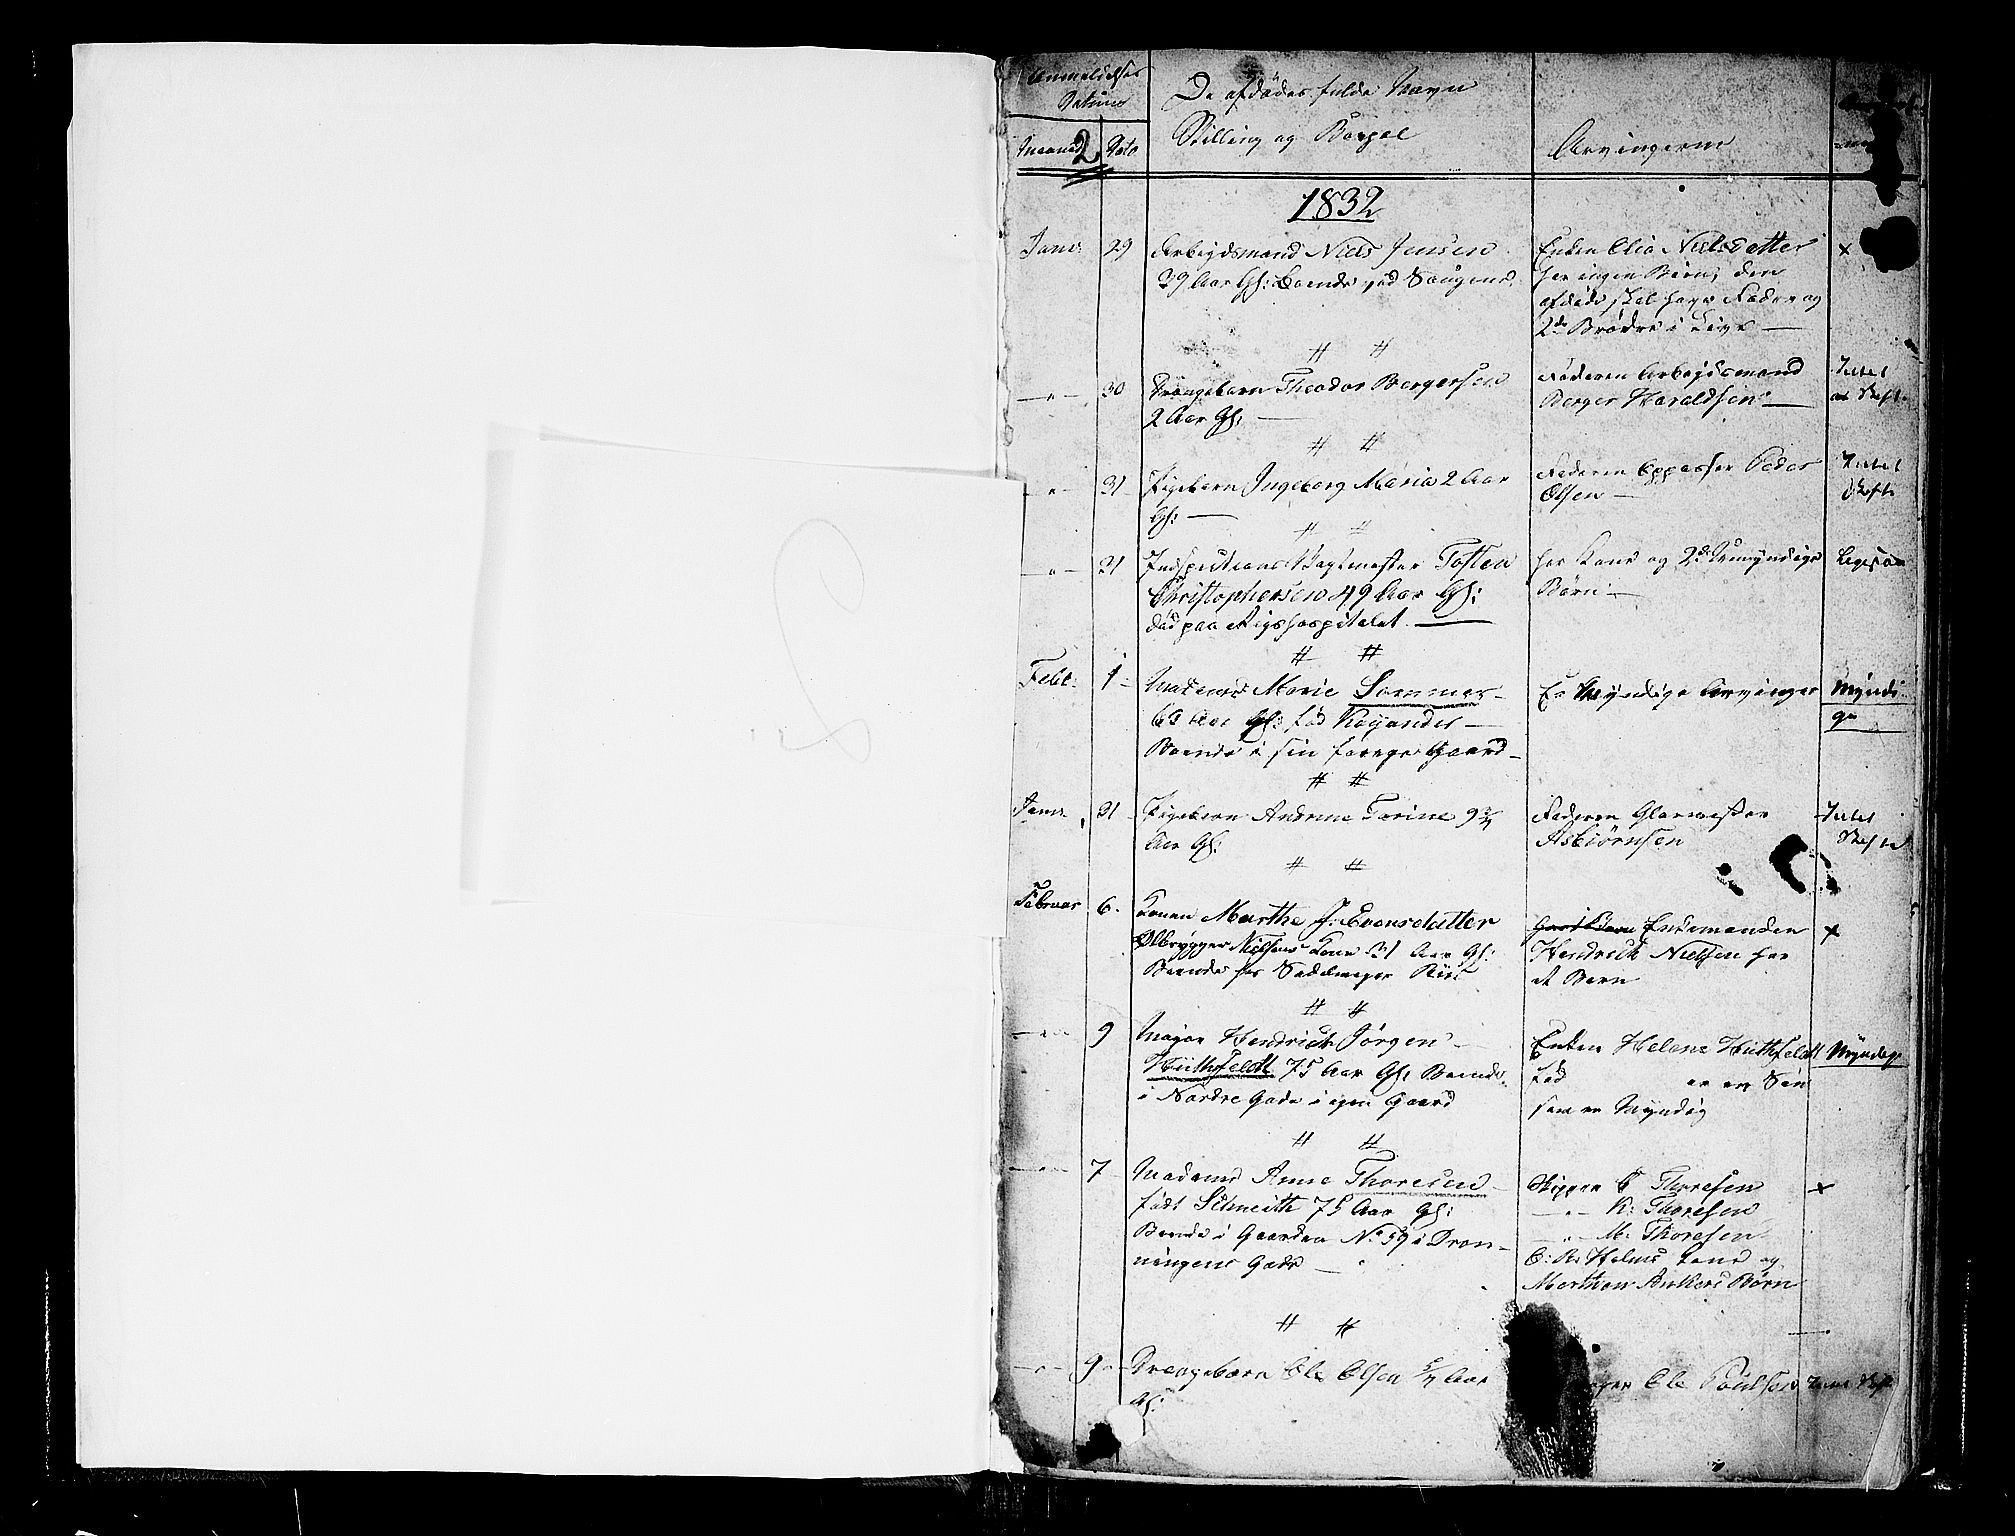 Anmeldelses
Datum
De afdødes fulde Navn
Stilling og Bopæl
Arvingerne
Maaned
2
Dato
1832
Janr: 29 Arbeydsmand Niels Jensen
39 Aar Gl: boende ved Saugene
Enken Elia Nielsdatter
har ingen Børn, den
afdøde skal have Fader og
2de Brødre i Live —
×
# #
—"— 30 Drengebarn Theodor Bergersen
2 Aar Gl: —
Faderen Arbejdsmand
Berger Haraldsen —
Intet
at Skifte
# #
—"— 31 Pigebarn Ingeborg Maria 2 Aar
Gl: —
Faderen Oppasser Peder
Olsen —
Intet
Skifte
# #
—"— 31 Inspections Vagtmester Tosten
Christophersen 49 Aar Gl:
død paa Rigshospitalet. —
har Kone og 2de Umyndige
Børn —
# #
Febr: 1 Madame Marie Sommer
Aar Gl: fød
Boende i sin Gaard —
Er Myndige Arvinger
Myndi-
ge
# #
Janr 31 Pigebarn Andrine Torine 9 3/4
Aar Gl:
Faderen Glarmester
Asbiørnsen
Intet
Skifte
# #
Februar 6. Konen Marthe J: Evensdatter
Ølbrygger Nielsens Kone 31 Aar Gl:
Boende hos Sadelmager
Enkemanden
Hendrich Nielsen har
et Barn
×
# #
—"— 9 Major Hendrich Jørgen
Hüthfeldt 75 Aar Gl: Boende
i Nordre Gade i egen Gaard
Enken Helene Hüthfeldt
fød er en Søn
som er Myndig
Myndige
# #
—"— 7 Madame Anne Thoresen
født Schmeith 75 Aar Gl:
Boende i Gaarden No 59 i Dron-
ningens Gade —
Skipper C Thoresen
—"— K: Thoresen
—"— M: Thoresen
C: R: Helms Kone og
Morthen Ankers Børn
×
# #
—"— 9 Drengebarn Ole Olsen 5/4 Aar
Gl:
Ole Poulsen Intet Skifte